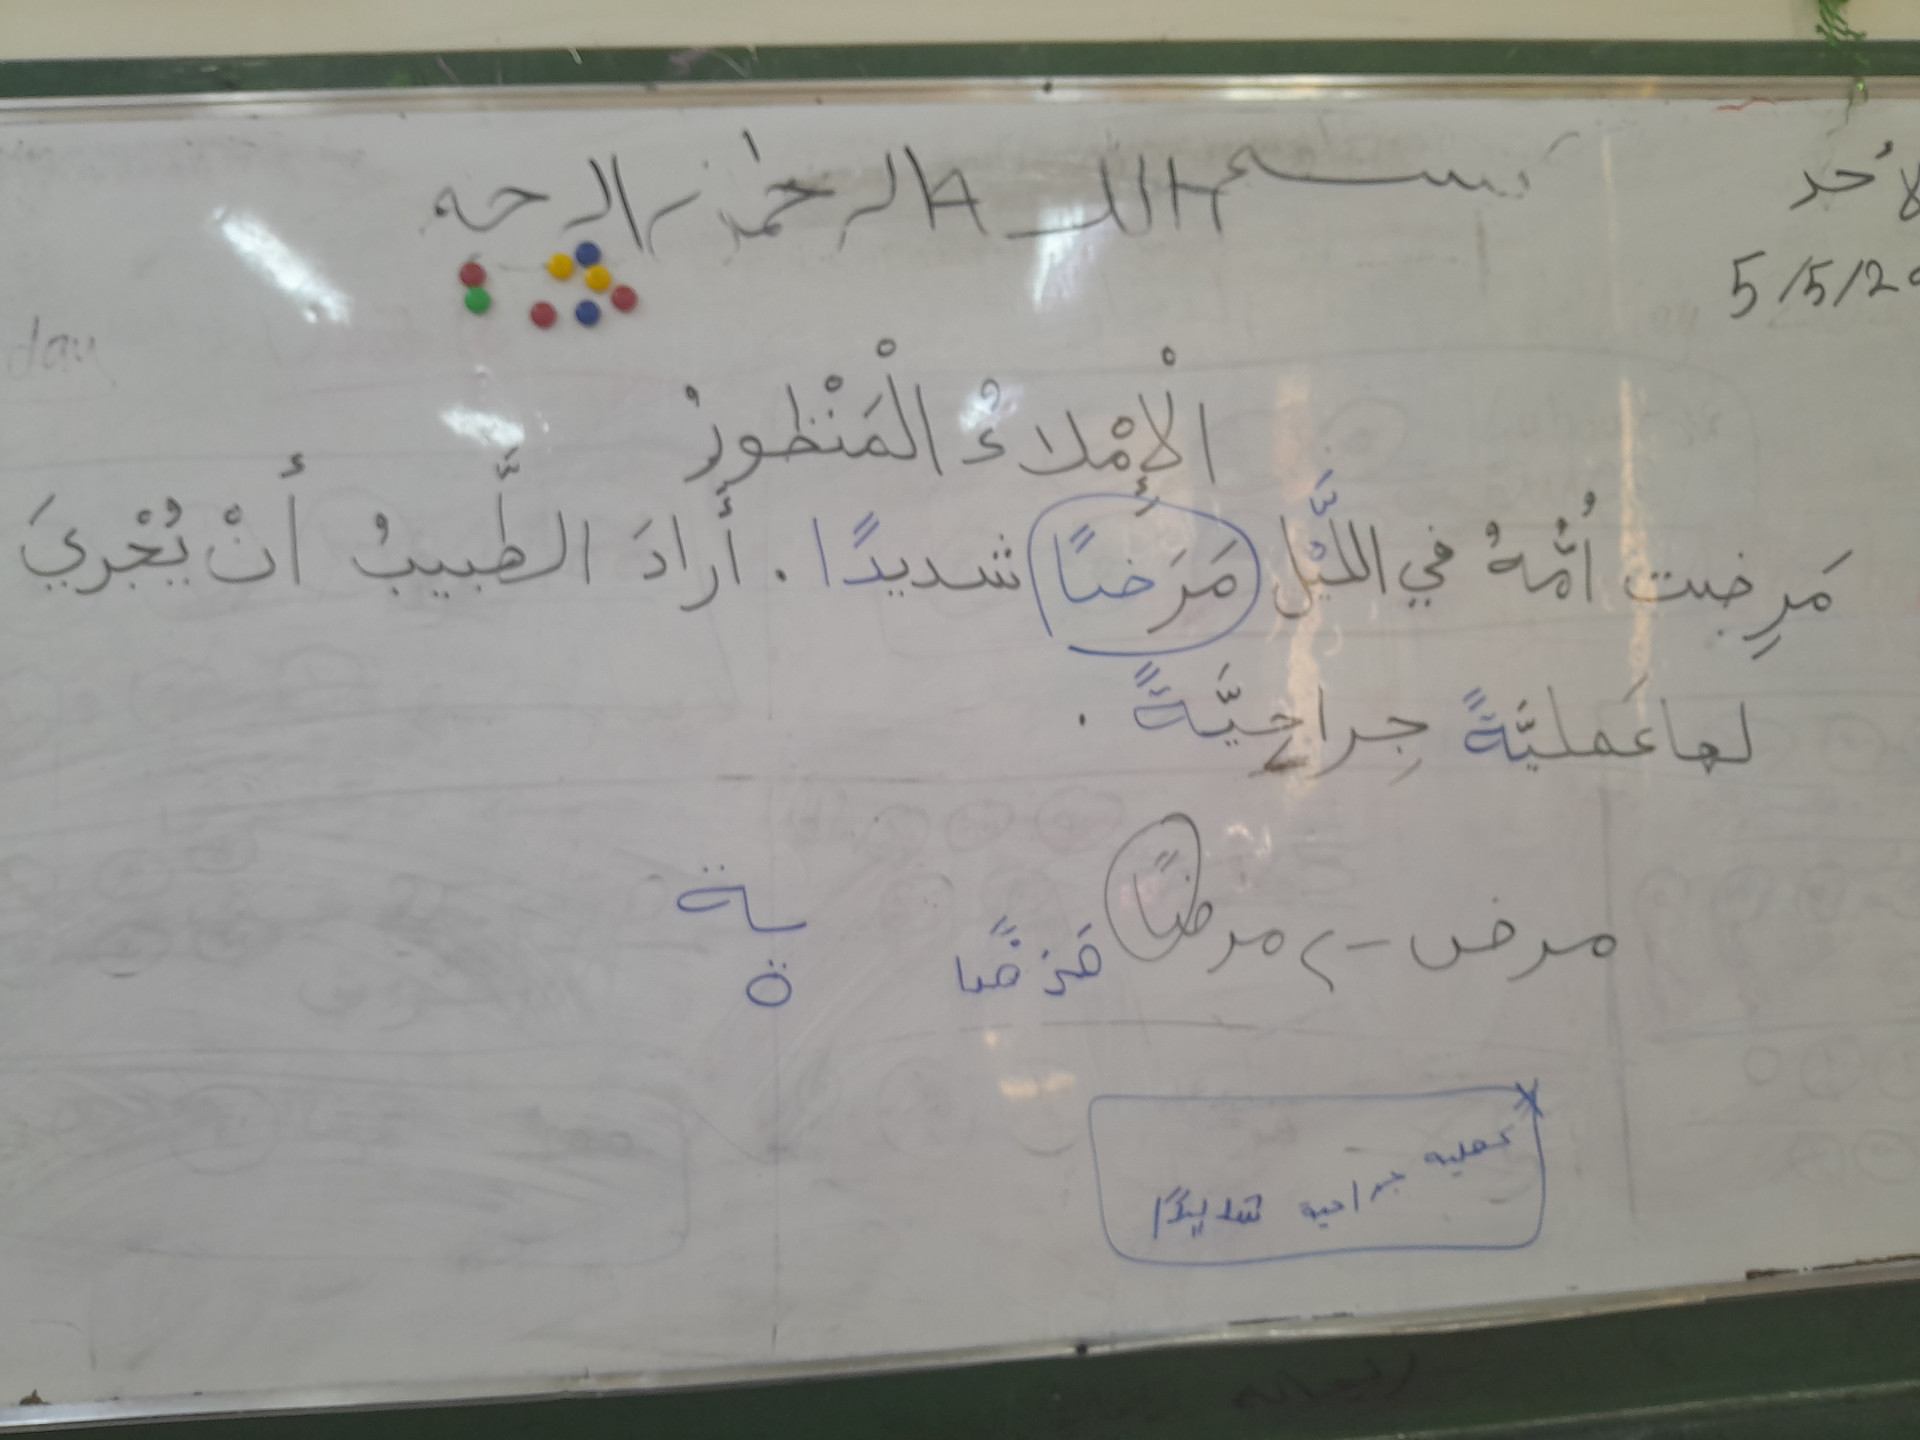 بسم الله الرحمٰن الرحيم
الأحد
5/5/20
الْإِمْلاءُ الْمَنْظورُ
مَرِضت أُمُّهُ في اللَّيْل مَرَضًا شديدًا . أَرادَ الطَّبيبُ أَنْ يُجْريَ
لها عَمليَّةً جِراحيَّةً .
مرض - مرضًا مَرَضًا
ـة
ة
عملية جراحية شديدًا
day